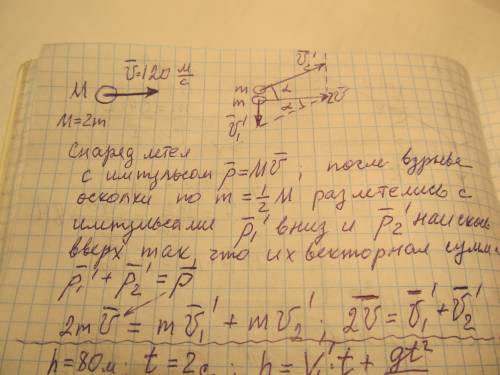 M v̄=120 м/с
M=2m
m m α α v̄₂' 2v̄ v̄₁'
Снаряд летел
с импульсом p̄=Mv̄; после взрыва
осколки по m=½M разлетелись с
импульсами p̄₁' вниз и p̄₂' наискось
вверх так, что их векторная сумма
p̄₁'+p̄₂'=p̄
2mv̄=mv̄₁'+mv̄₂'; 2v̄=v̄₁'+v̄₂'
h=80м; t=2с; h=v₁'t+gt²